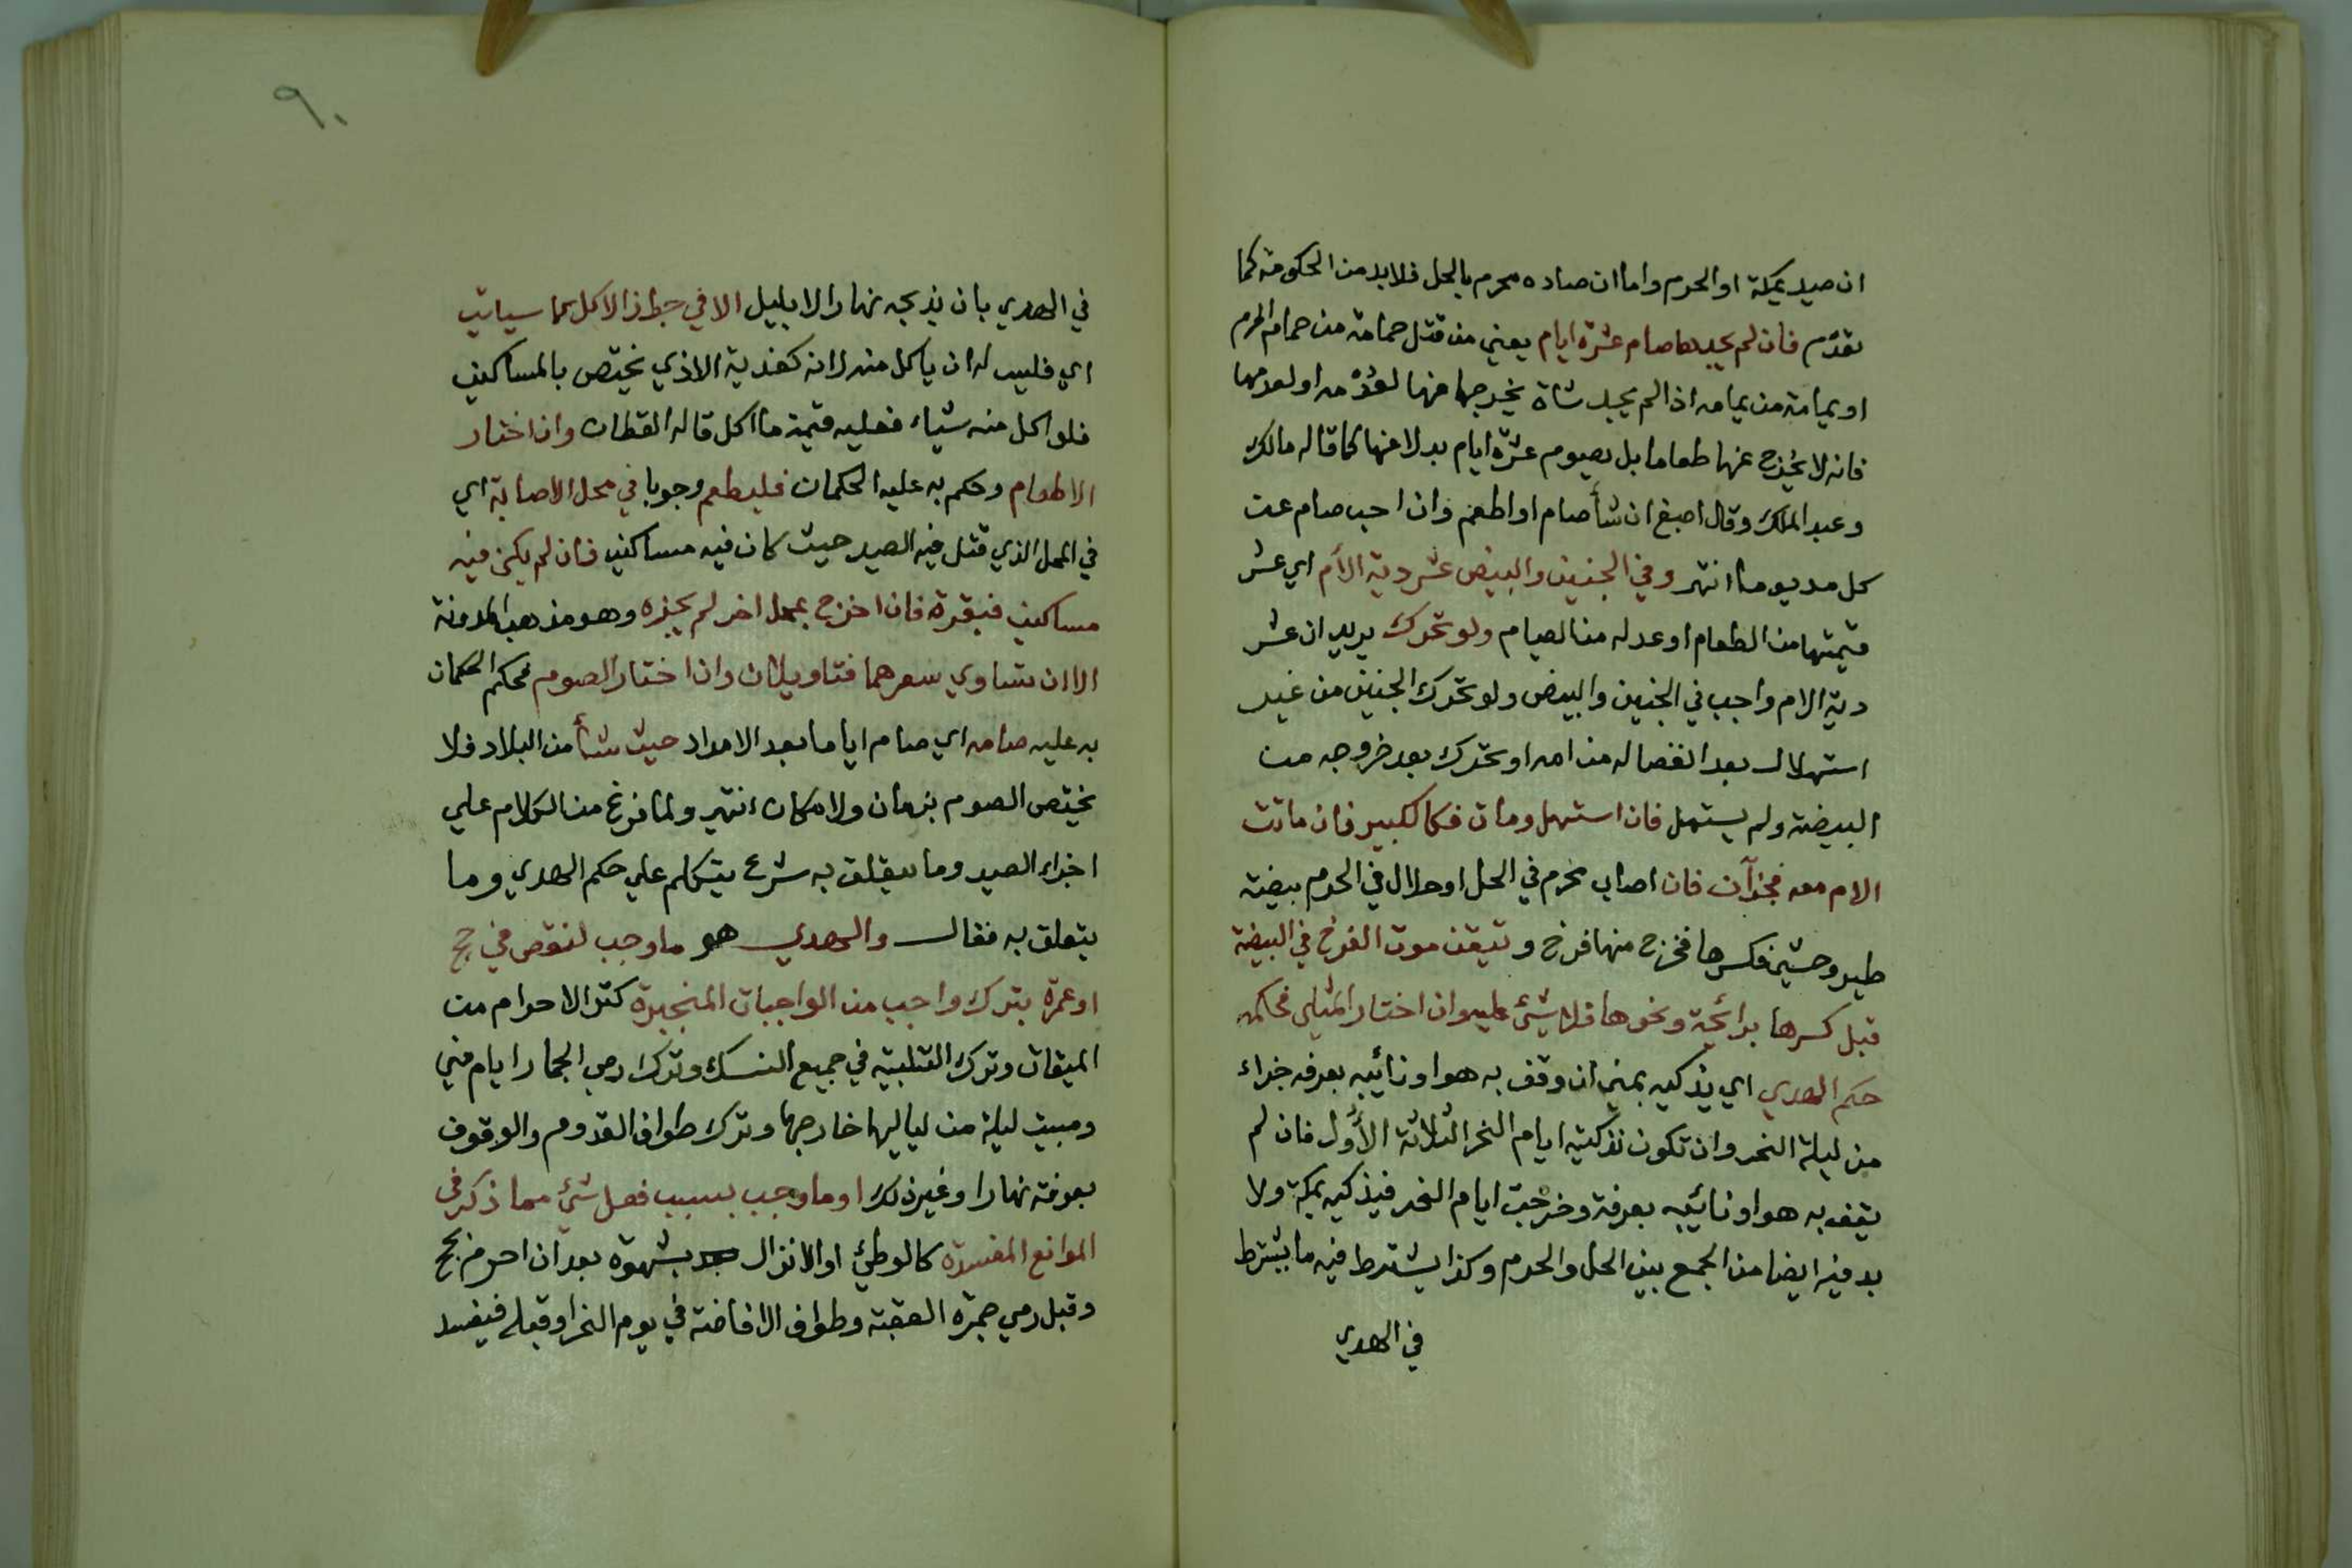 ان صيد بمكة او الحرم واما ان صاده محرم بالحل فلا بد من الحكومة كما
تقدم فان لم يجدها صام عشرة ايام يعني من قتل حمامة من حمام الحرم
او يمامة من يمامه اذا لم يجد شاة يخرجها عنها لعدمه او لعدمها
فانه لا يخرج عنها طعاما بل يصوم عشرة ايام بدلا عنها كما قاله مالك
وعبد الملك وقال اصبغ ان شأ صام او اطعم وان احب صام عن
كل مد يوما انتهر وفي الجنين والبيض عشر دية الأم اي عشر
قيمتها من الطعام او عدله من الصيام ولو تحرك يريد ان عشر
دية الام واجب في الجنين والبيض ولو تحرك الجنين من غير
استهلال بعد انفصاله من امه او تحرك بعد خروجه من
البيضة ولم يستهل فان استهل ومات فكالكبير فان ماتت
الام معه فجزآن فان اصاب محرم في الحل او حلال في الحرم بيضة
طير وحشي فكسرها فخرج منها فرخ وتيقن موت الفرخ في البيضة
قبل كسرها برائحة ونحوها فلا شئ عليه وان اختار المثلي فحكمه
حكم الهدي اي يذكيه بمني ان وقف به هو او نائيبه بعرفه جزاء
من ليلة النحر وان تكون تذكيته ايام النحر الثلاثة الأول فان لم
يقف به هو او نائيبه بعرفة وخرجت ايام النحر فيذكيه بمكة ولا
بد فيه ايضا من الجمع بين الحل والحرم وكذا يشترط فيه ما يشترط
في الهدي
٩٠
في الهدي بان يذبحه نهارا لا بليل الا في جواز الاكل بما سياتي
اي فليس له ان ياكل منه لانه كفدية الاذي يختص بالمساكين
فلو اكل منه شياء فعليه قيمة ما اكل قاله القطان وان اختار
الاطعام وحكم به عليه الحكمان فليطعم وجوبا في محل الاصابة اي
في المحل الذي قتل فيه الصيد حيث كان فيه مساكين فان لم يكن فيه
مساكين فبقربه فان اخرج بمحل اخر لم يجزه وهو مذهب المدونة
الا ان تساوي سعرهما فتاويلان وان اختار الصوم فحكم الحكمان
به عليه صامه اي صام اياما بعد الامداد حيث شأ من البلاد فلا
يختص الصوم بزمان ولا مكان انتهر ولما فرغ من الكلام علي
اجزاء الصيد وما يتعلق به شرع يتكلم علي حكم الهدي وما
يتعلق به فقال والهدي هو ما وجب لنقص في حج
او عمرة بترك واجب من الواجبات المنجبرة كترك الاحرام من
الميقات وترك التلبية في جميع النسك وترك رمي الجمار ايام مني
ومبيت ليلة من لياليها خارجها وترك طواف القدوم والوقوف
بعرفة نهارا وغير ذلك او ما وجب بسبب فعل شئ مما ذكر في
الموانع المفسدة كالوطئ او الانزال بشهوة بعد ان احرم بحج
وقبل رمي جمرة العقبة وطواف الافاضة في يوم النحر او قبله فيفسد